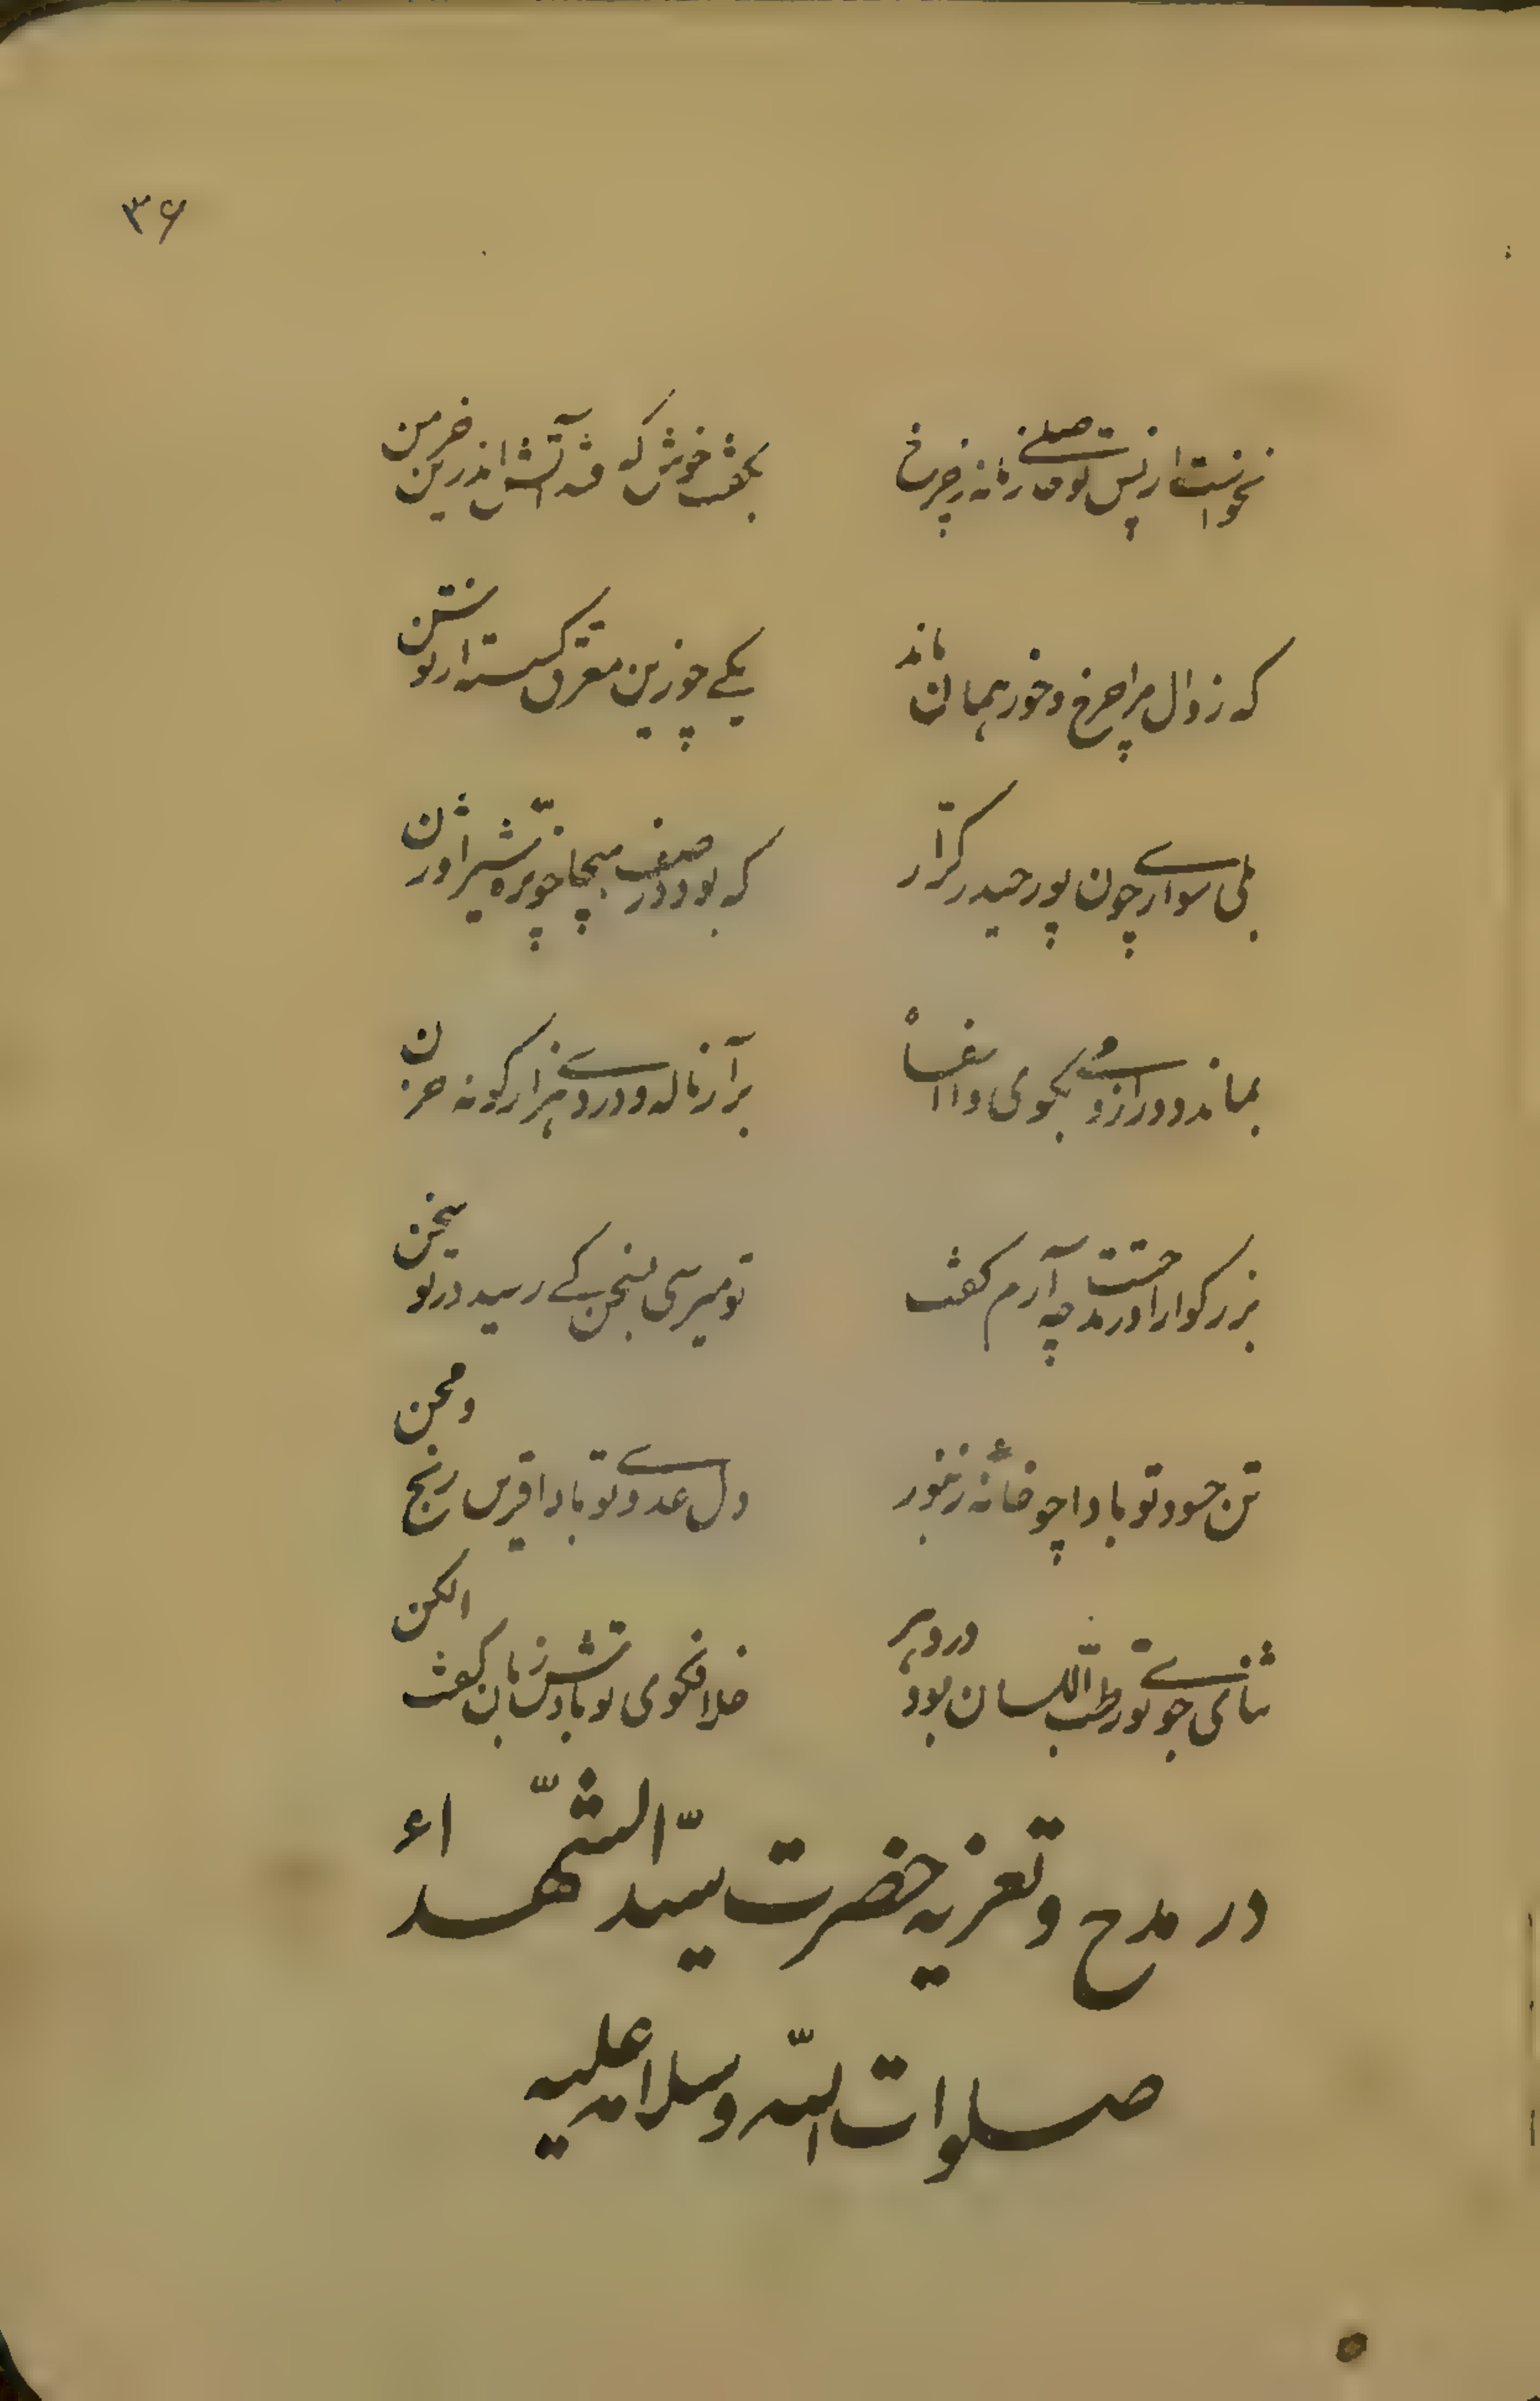 ۳۶
نخواست از پس تو صلح زمانه ز چرخ
بگفت خوش که فتد آتش اندرین خرمن
که زوال مرا چرخ و خور همان ماند
یکی چو زین مغرق گسسته از توسن
بلی سواری چون پور حیدر کرّار
که بود در صف هیجا چو نرّه شیر اوژن
بماند دور ازو بگوی وا اسفاه
برآر ناله و درد هزار گونه حزن
بزرگوارا در مدحتت چه آرم گفت
تو میرسی بسخن کی رسید در تو سخن
تن حسود تو بادا چو خانهٔ زنبور
دل عدوی تو بادا قرین رنج و محن
ثنای جوی تو رطب اللّسان بود در دهر
خلافگوی تو بادش زبان گفت الکن
در مدح و تعزیه حضرت سیّد الشّهداء
صلوات اللّه و سلامه علیه